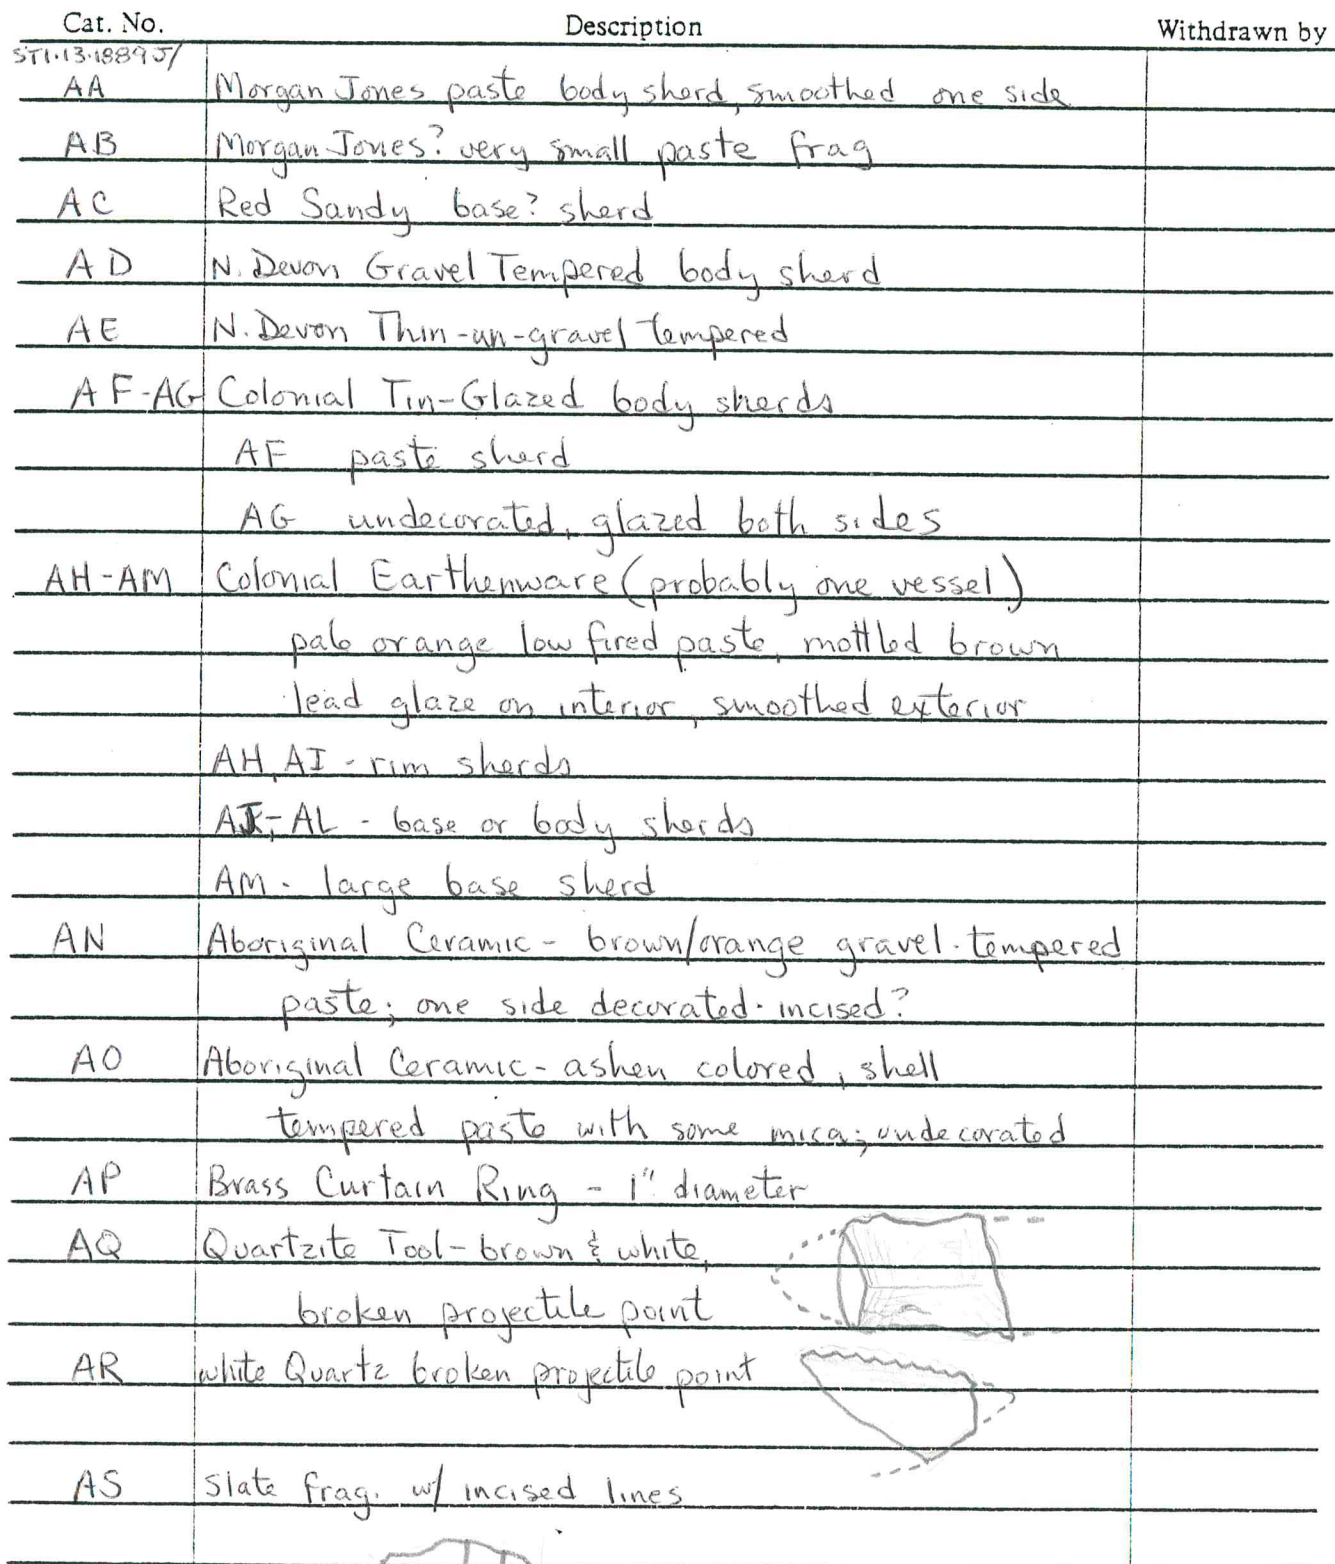 Cat. No. Description Withdrawn by
ST1.13.1889J/
AA Morgan Jones paste body sherd, smoothed one side
AB Morgan Jones? very small paste frag
AC Red Sandy base? sherd
AD N. Devon Gravel Tempered body sherd
AE N. Devon Thin-un-gravel tempered
AF-AG Colonial Tin-Glazed body sherds
AF paste sherd
AG undecorated, glazed both sides
AH-AM Colonial Earthenware (probably one vessel)
pale orange low fired paste, mottled brown
lead glaze on interior, smoothed exterior
AH, AI - rim sherds
AJ-AL - base or body sherds
AM - large base sherd
AN Aboriginal Ceramic - brown/orange gravel-tempered
paste; one side decorated - incised?
AO Aboriginal Ceramic - ashen colored, shell
tempered paste with some mica; undecorated
AP Brass Curtain Ring - 1" diameter
AQ Quartzite Tool - brown & white,
broken projectile point
AR white Quartz broken projectile point
AS Slate frag. w/ incised lines